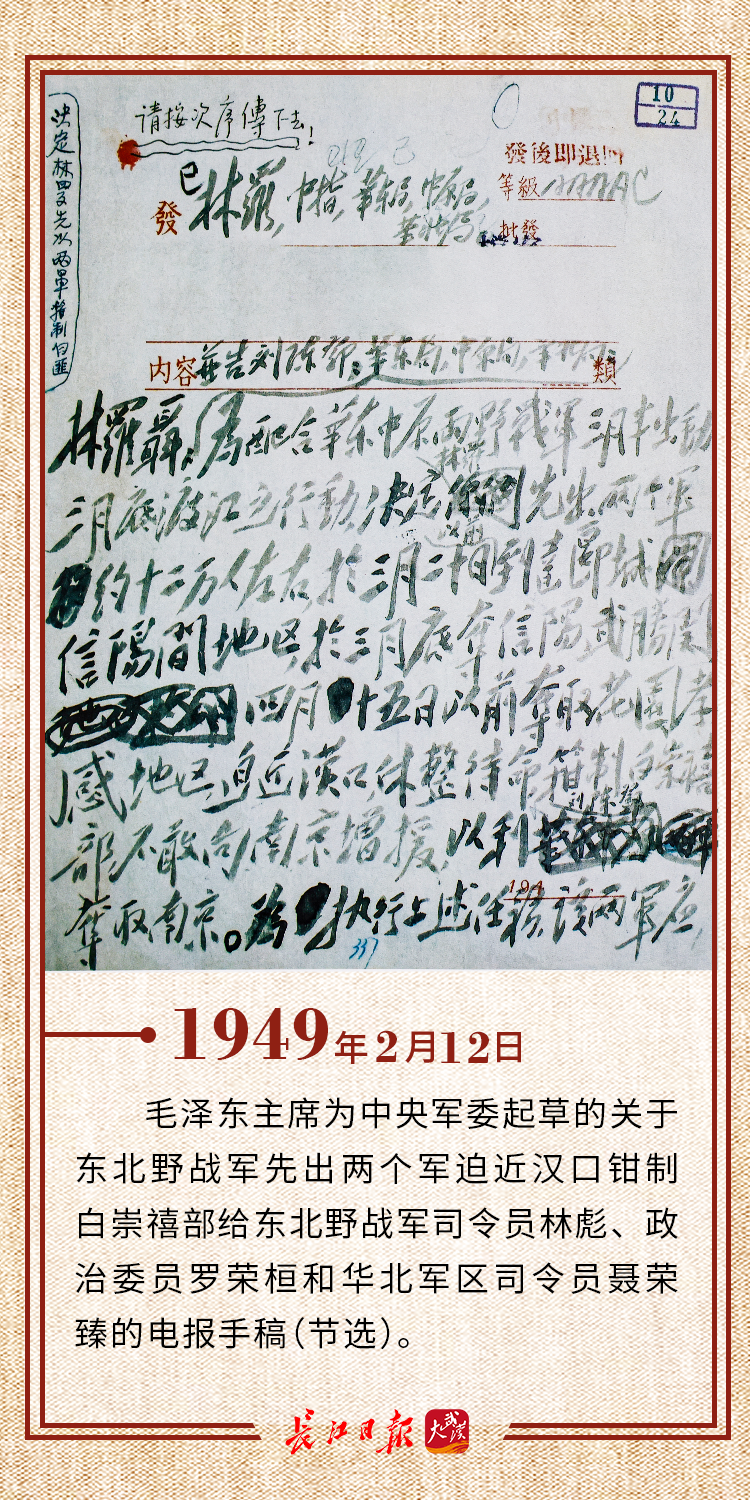 请按次序傳下去!
10
24
發後即退
等級AAAAC
發 林羅,中指,華东局,中原局,
批發
内容 并告刘陈邓,華东局,中原局, 類
林羅聶:為配合華东中原两野戰軍三月半出動
三月底渡江之行動,决定 先出两个軍
约十二万人左右,於三月二十日 到達 郾城
信陽間地区,於三月底夺信陽武勝関
四月十五日以前夺取花園孝
感地区,迫近漢口,休整待命,箝制白崇禧
刘陈邓
部不敢向南京增援,以利
夺取南京。為执行上述任務,该两軍应
194
337
1949年2月12日
毛泽东主席为中央军委起草的关于
东北野战军先出两个军迫近汉口钳制
白崇禧部给东北野战军司令员林彪、政
治委员罗荣桓和华北军区司令员聂荣
臻的电报手稿(节选)。
长江日报 大武汉